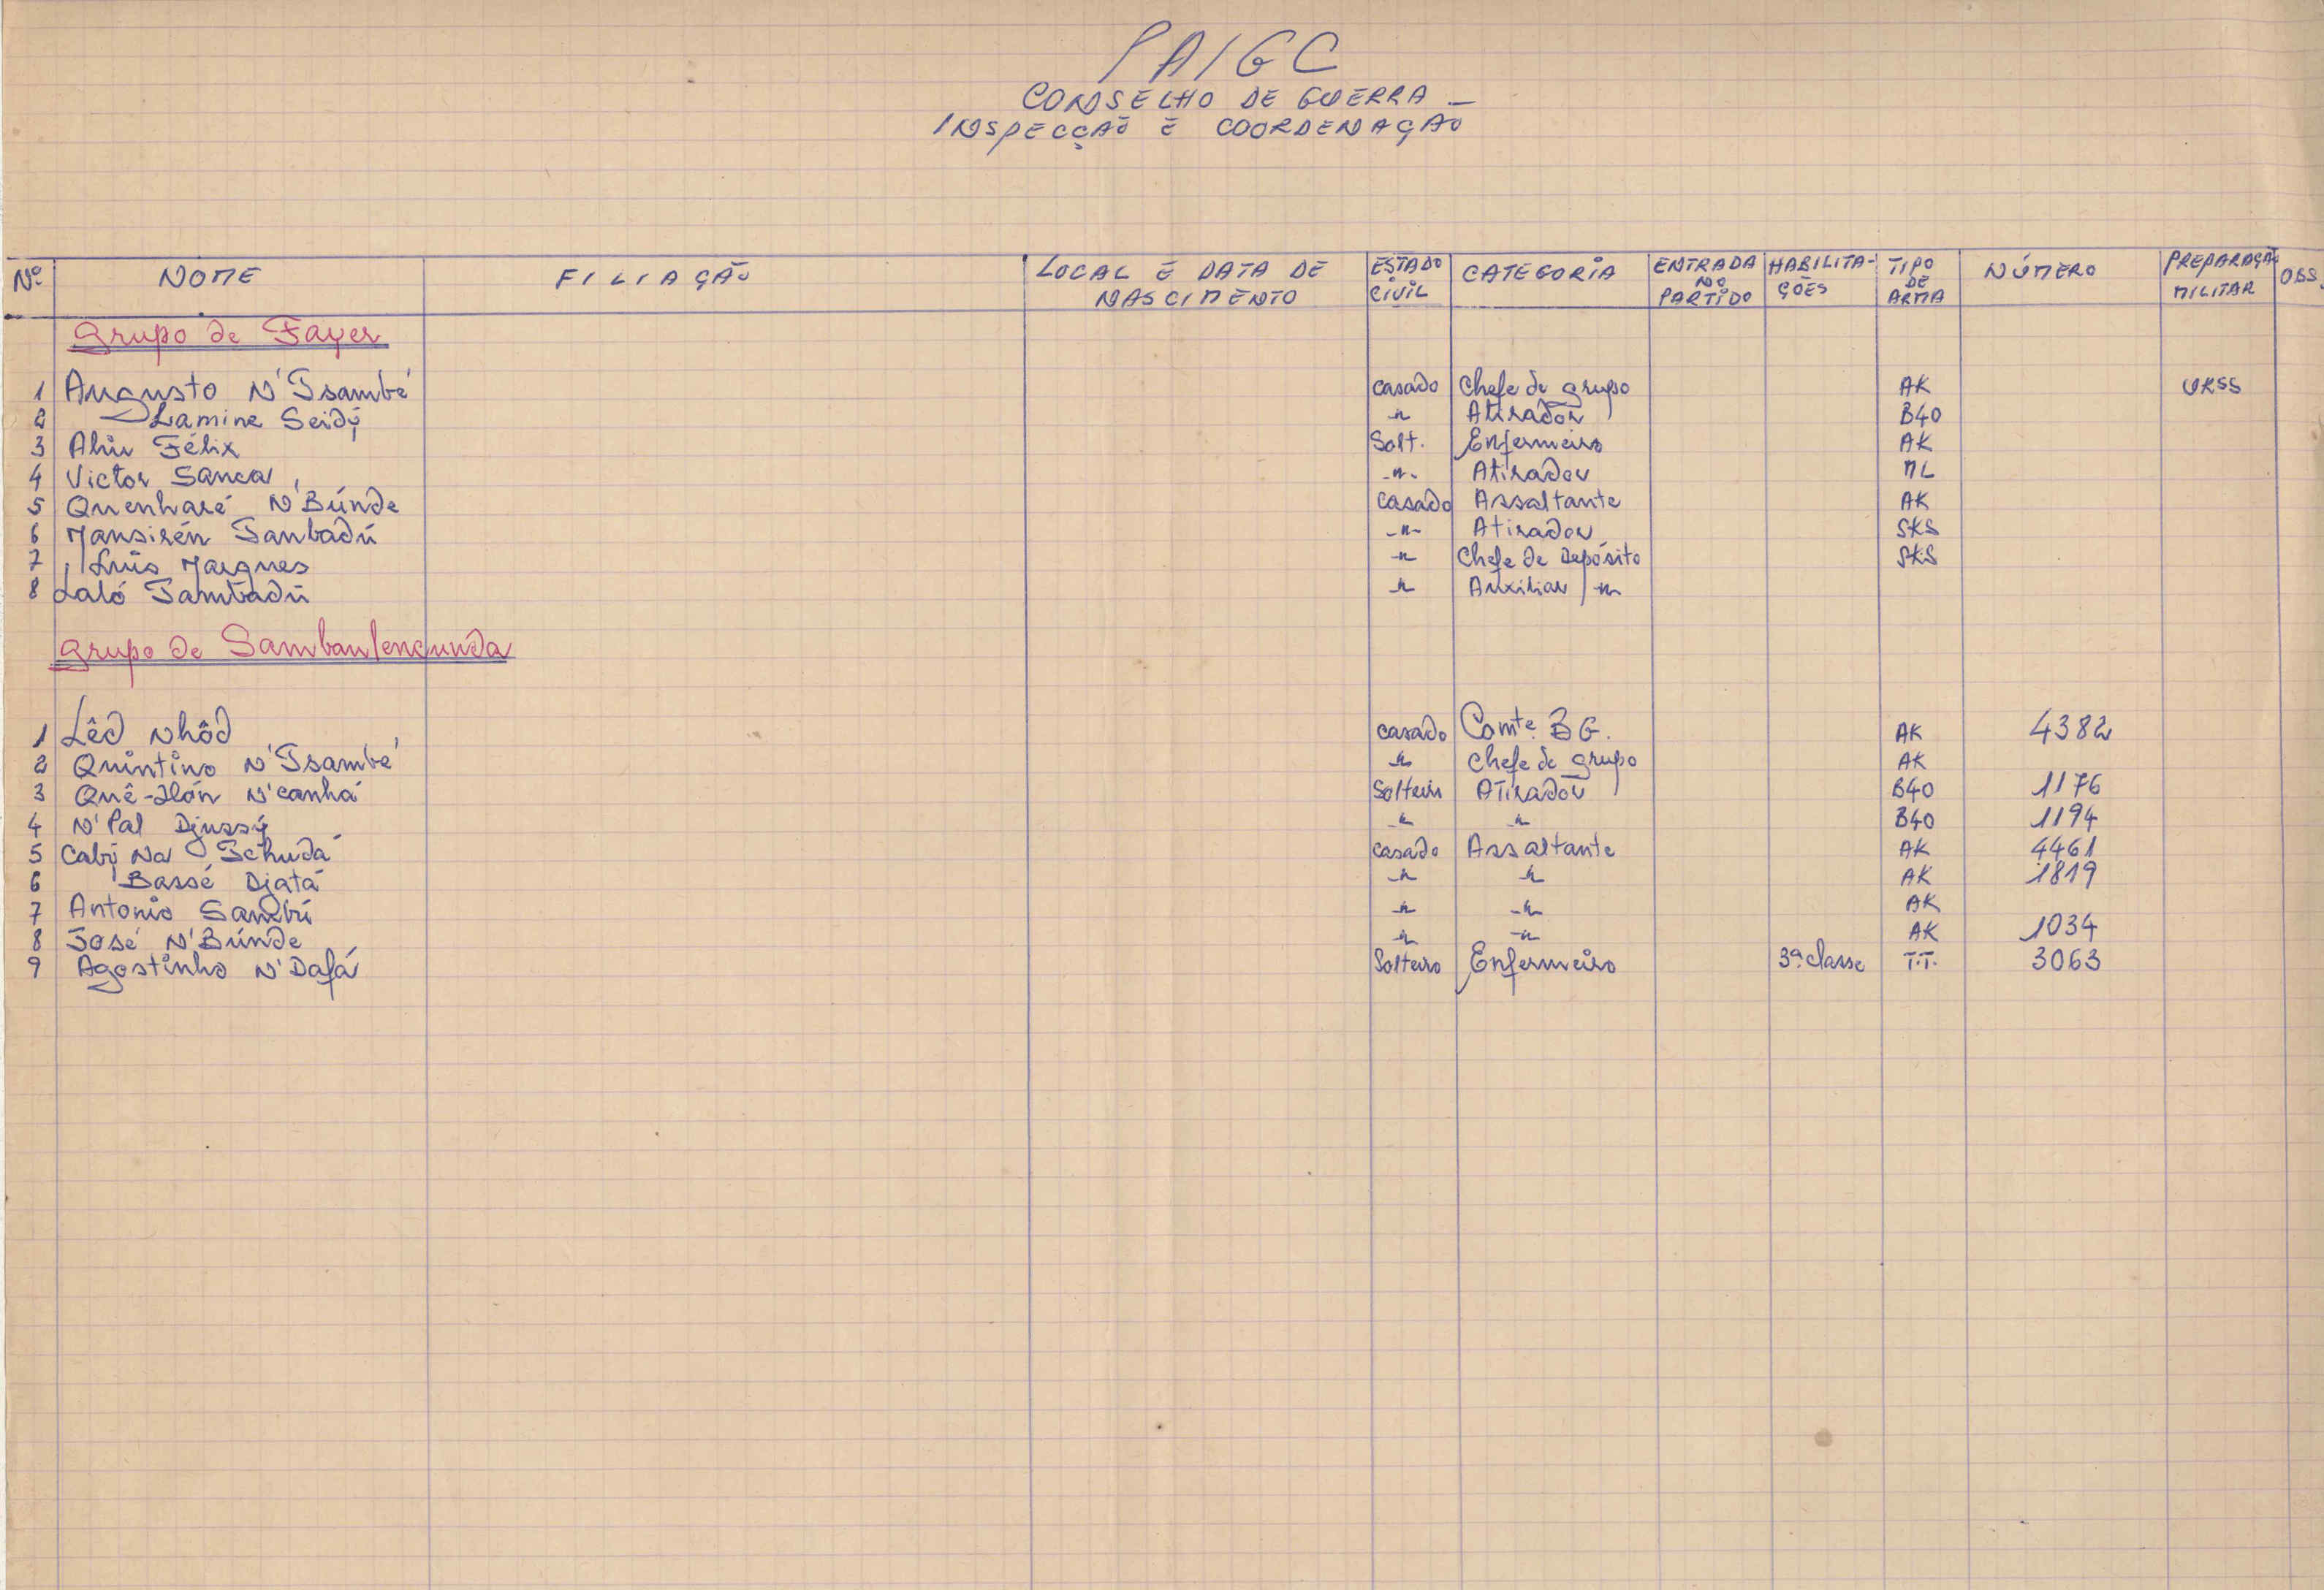 PAIGC
CONSELHO DE GUERRA —
INSPECÇÃO E COORDENAÇÃO
Nº NOME FILIAÇÃO LOCAL E DATA DE NASCIMENTO ESTADO CIVIL CATEGORIA ENTRADA NO PARTIDO HABILITA-ÇÕES TIPO DE ARMA NÚMERO PREPARAÇÃO MILITAR OBS.
Grupo de Fayer
1 Augusto N'Tsambé casado Chefe de grupo AK URSS
2 Lamine Seidy " Atirador B40
3 Félix Solt. Enfermeiro AK
4 Victor Sanca -"- Atirador ML
5 Quenharé N'Búnde casado Assaltante AK
6 Mansirén Tanbadú -"- Atirador SKS
7 Luis Marques -" Chefe de Depósito SKS
8 Laló Tambadú -"- Auxiliar / -"-
Grupo de Sambaulencunda
1 Lêd Nhôd casado Comte. BG. AK 4382
2 Quintino N'Tsambé " Chefe de grupo AK
3 N'canhá Solteiro Atirador B40 1176
4 N'Pal Djussy -"- -"- B40 1194
5 Caby Na Tchudá casado Assaltante AK 4461
6 Bassé Djatá -"- -"- AK 1819
7 Antonio Sambú -"- -"- AK
8 José N'Búnde -"- -"- AK 1034
9 Agostinho N'Dafá Solteiro Enfermeiro 3ª classe T.T. 3063